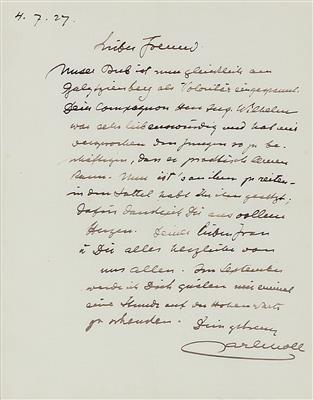 4. 7. 27.
Lieber Freund.
Unser Bub ist nun glücklich am
als Volontär eingespannt.
Dein Compagnon Herr Ing. Wilhelm
war sehr liebenswürdig und hat mir
versprochen den Jungen so zu be-
schäftigen, dass er practisch lernen
kann. Nun ist's an ihm zu reiten -
in den Sattel habt Ihr ihn gesetzt;
dafür Dir aus vollem
Herzen. Deiner lieben Frau
u Dir alles herzliche von
uns allen. Im September
werde ich Dich quälen mir einmal
eine Stunde auf der Hohen Warte
zu schenken. Dein getreuer
Carl Moll